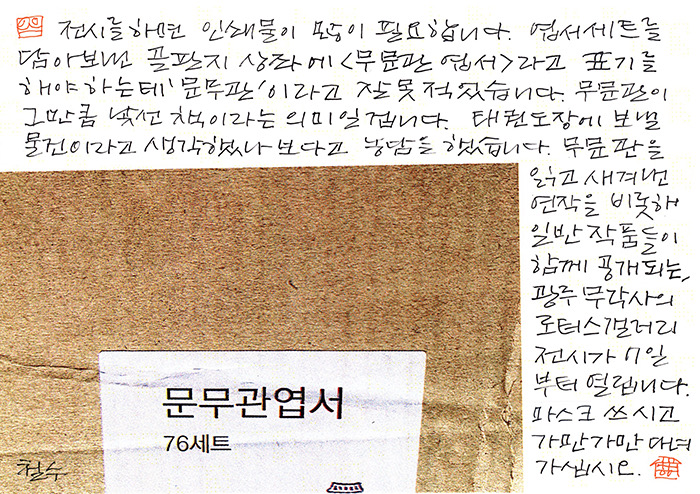 전시를 하면 인쇄물이 모둠이 필요합니다. 엽서세트를
담아보낸 골판지 상자에 <무문관 엽서>라고 표기를
해야 하는데 '문무관'이라고 잘못 적었습니다. 무문관이
그만큼 낯선 책이라는 의미일겁니다. 태권도장에 보낼
물건이라고 생각했나 보다고 농담을 했습니다. 무문관을
읽고 새겨낸
연작을 비롯해
일반 작품들이
함께 공개되는,
광주 무각사의
로터스갤러리
전시가 7일
부터 열립니다.
마스크 쓰시고
가만가만 다녀
가십시오.
문무관엽서
76세트
철수